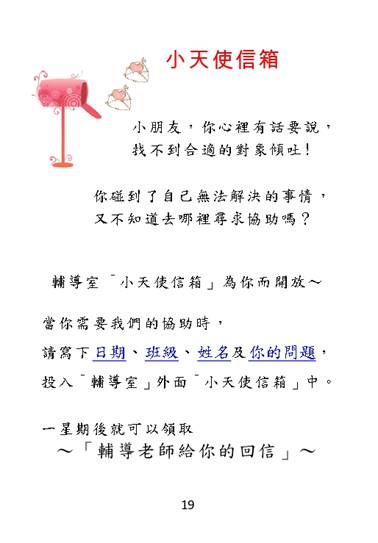 小天使信箱
小朋友，你心裡有話要說，
找不到合適的對象傾吐!
你碰到了自己無法解決的事情，
又不知道去哪裡尋求協助嗎？
輔導室「小天使信箱」為你而開放～
當你需要我們的協助時，
請寫下日期、班級、姓名及你的問題，
投入「輔導室」外面「小天使信箱」中。
一星期後就可以領取
～「輔導老師給你的回信」～
19